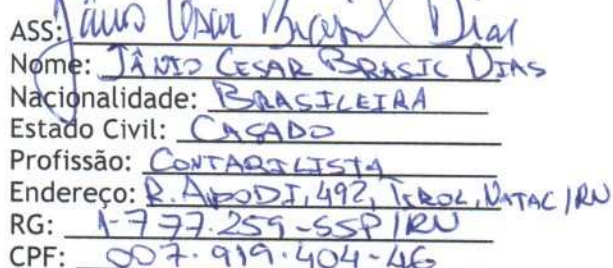 ASS: Jânio Cesar Brasil Dias
Nome: JÂNIO CESAR BRASIL DIAS
Nacionalidade: BRASILEIRA
Estado Civil: CASADO
Profissão: CONTABILISTA
Endereço: R. APODI, 492, TIROL, NATAL/RN
RG: 1-777.259-SSP/RN
CPF: 007.919.404-46